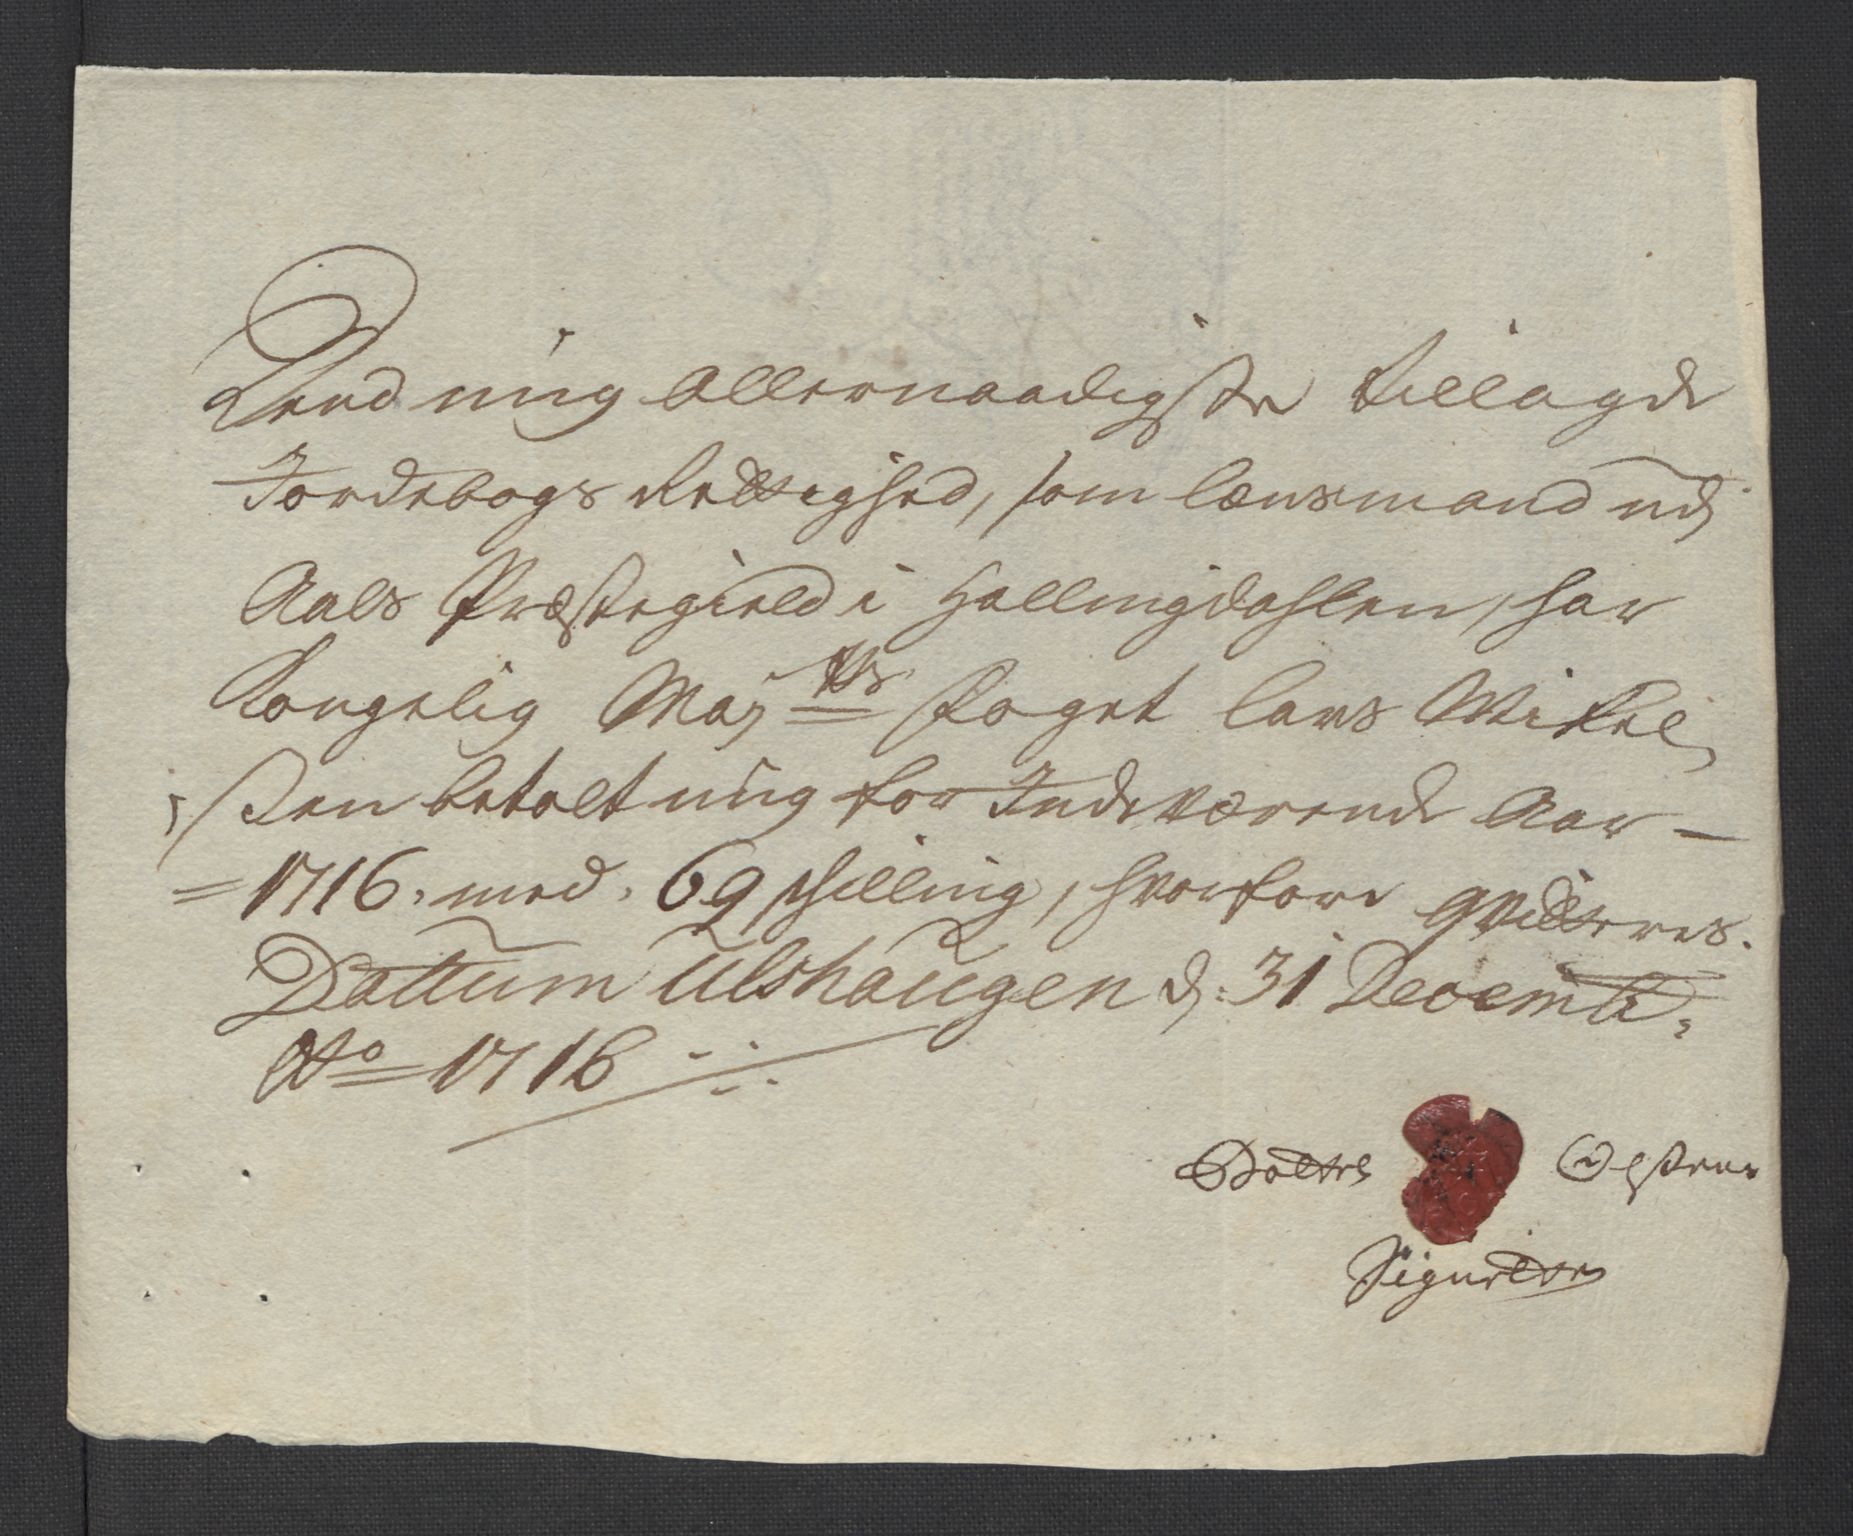 Dend mig Allernaadigste tillagde
Jordebogs Rettighed, som Lænsmand udj
Aals Præstegield i Hallingdahlen, har
Kongelig Maj<sup>tts</sup> Foget Lars Mikel
ßen betalt mig for Indeværende Aar –
= 1716, med, 69 schilling, hvorfore qvitteres.
Dattum Ulshaugen d. 31 Decemb:
A<sup>o</sup> 1716
Østenn
Sigurdsøn